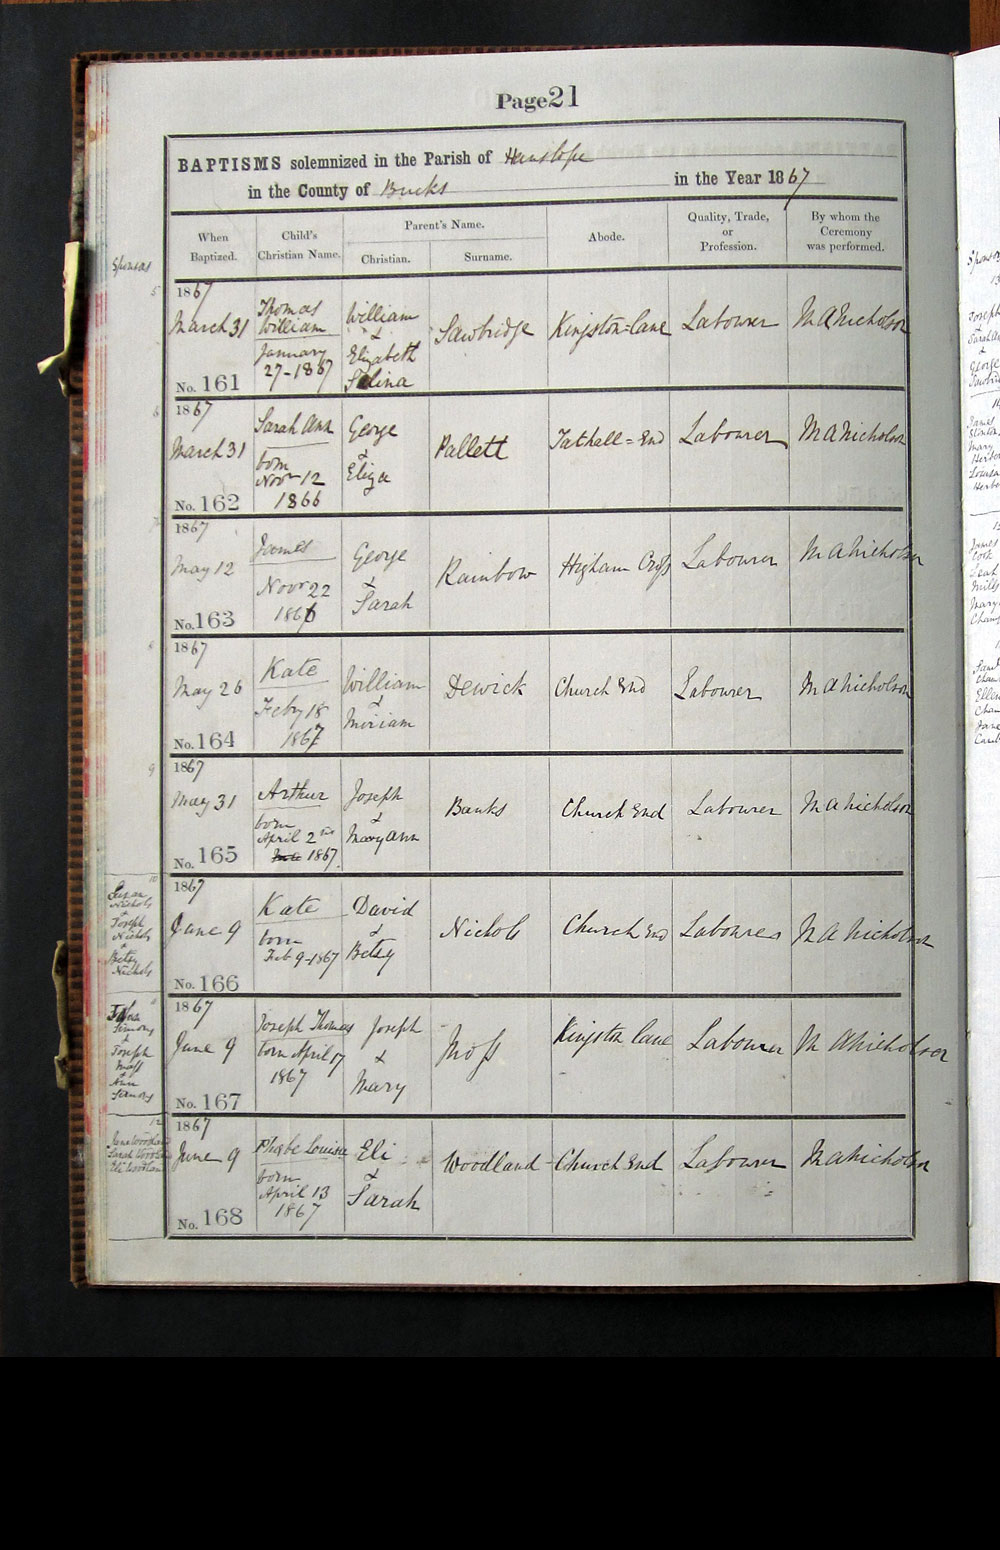 Page 21
BAPTISMS solemnized in the Parish of Hanslope
in the County of Bucks in the Year 1867
When Baptized.
Child's Christian Name.
Parent's Name.
Christian.
Surname.
Abode.
Quality, Trade, or Profession.
By whom the Ceremony was performed.
Sponsors
5
1867
March 31
No. 161
Thomas
William
January
27-1867
William
&
Elizabeth
Selina
Sawbridge
Kingston=lane
Labourer
M A Nicholson
6
1867
March 31
No. 162
Sarah Ann
born
Novr 12
1866
George
&
Eliza
Pallett
Tathall=End
Labourer
M A Nicholson
7
1867
May 12
No. 163
James
Novr 22
1866
George
&
Sarah
Rainbow
Higham Cross
Labourer
M A Nicholson
8
1867
May 26
No. 164
Kate
Feby 18
1867
William
&
Miriam
Dewick
Church End
Labourer
M A Nicholson
9
1867
May 31
No. 165
Arthur
born
April 2nd
1867
Joseph
&
Mary Ann
Banks
Church End
Labourer
M A Nicholson
10
Susan
Nichols
&
Joseph
Nichols
&
Betsy
Nichols
1867
June 9
No. 166
Kate
born
Feb 9-1867
David
&
Betsy
Nichols
Church End
Labourer
M A Nicholson
11
Simons
&
Joseph
Moss
&
Ann
Simons
1867
June 9
No. 167
Joseph Thomas
born April 17
1867
Joseph
&
Mary
Moss
Kingston lane
Labourer
M A Nicholson
12
Jane Woodland
Sarah Woodland
Eli Woodland
1867
June 9
No. 168
Phoebe Louisa
born
April 13
1867
Eli
&
Sarah
Woodland
Church End
Labourer
M A Nicholson